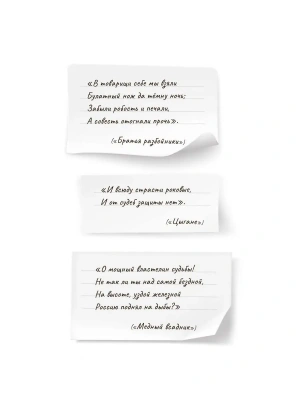 «В товарищи себе мы взяли
Булатный нож да тёмну ночь;
Забыли робость и печали,
А совесть отогнали прочь».
(«Братья разбойники»)
«И всюду страсти роковые,
И от судеб защиты нет».
(«Цыгане»)
«О мощный властелин судьбы!
Не так ли ты над самой бездной,
На высоте, уздой железной
Россию поднял на дыбы?»
(«Медный всадник»)